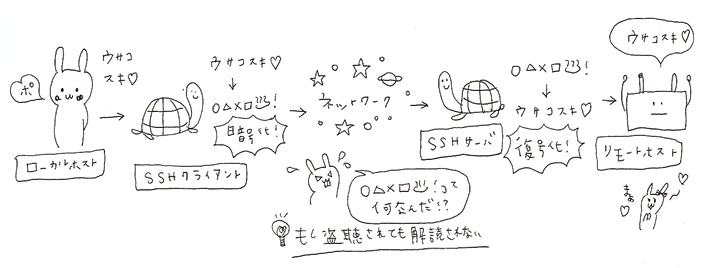 ポ
ウサコ
スキ♡
ローカルホスト
SSHクライアント
ウサコスキ♡
↓
○△×□!
暗号化!
ネットワーク
SSHサーバ
○△×□!
↓
ウサコスキ♡
復号化!
ウサコスキ♡
リモートホスト
まぁ
♡
○△×□!って
何なんだ!?
もし盗聴されても解読されない